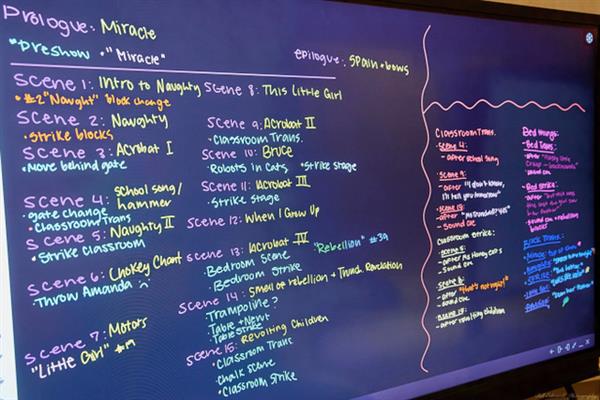 Prologue: Miracle
*preshow •"Miracle"
epilogue: Spain + bows
Scene 1: Intro to Naughty
•#2 "Naught" block change
Scene 2: Naughty
•strike blocks
Scene 3: Acrobat I
•Move behind gate
Scene 4: School song/
hammer
•gate change
•Classroom Trans
Scene 5: Naughty II
•Strike Classroom
Scene 6: Chokey Chant
Throw Amanda
Scene 7: Motors
"Little Girl" #19
Scene 8: This Little Girl
Scene 9: Acrobat II
•Classroom Trans.
Scene 10: Bruce
•Robots in Cats •Strike stage
Scene 11: Acrobat III
•Strike stage
Scene 12: When I Grow Up
Scene 13: Acrobat IV
•Bedroom Scene
•Bedroom Strike
"Rebellion" #39
Scene 14: Smell of rebellion + Trunch Revelation
Trampoline?
•Table + Newt
•Table Strike
Scene 15: Revolting Children
•Classroom Trans
•Chalk Scene
•Classroom Strike
Classroom Trans.
•Scene 4:
-after school song
•Scene 9:
-after "I don't know,
I'll tell you tomorrow"
•Scene 15:
-after
-Sound Cue
Classroom Strike:
•Scene 5:
-Sound Cue
Scene 6:
-after "that's not right!"
-Sound Cue
-after revolting children
Bed Things:
•Bed Trans:
Bed Strike: